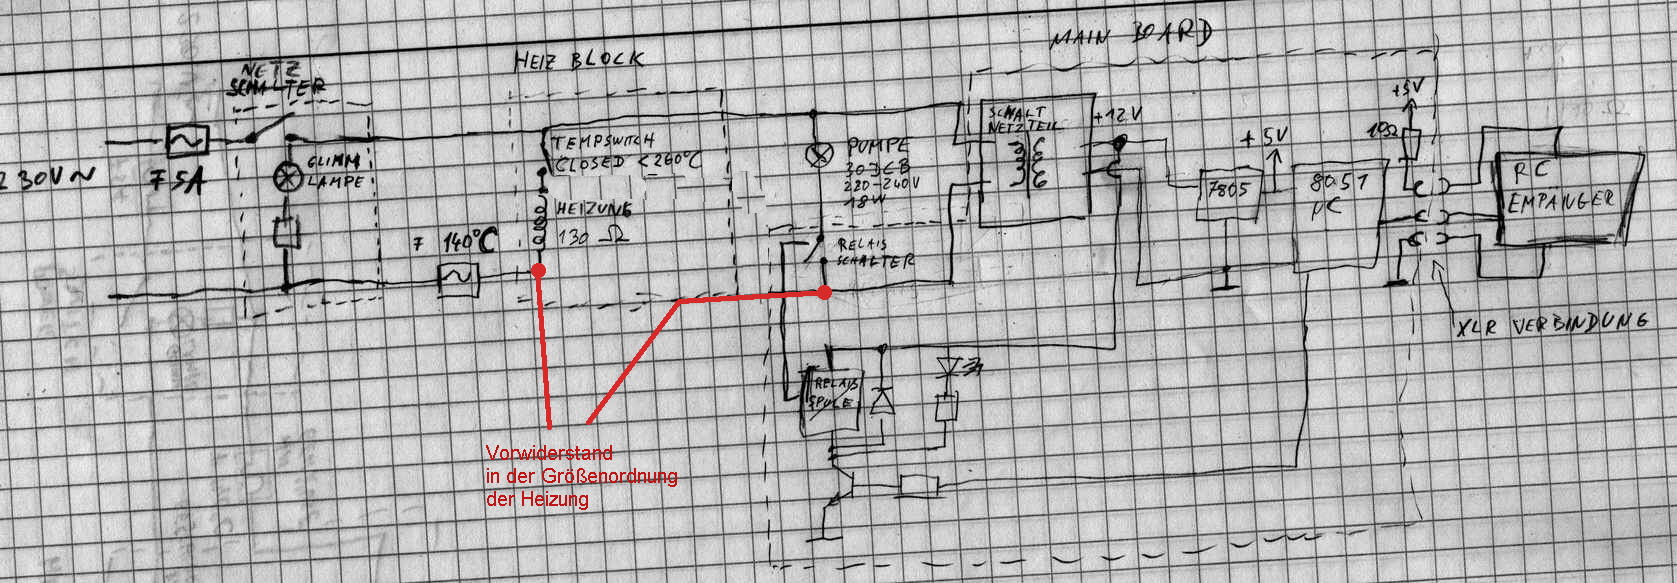 MAIN BOARD
HEIZ BLOCK
NETZ
SCHALTER
230V~
7 5A
GLIMM
LAMPE
TEMPSWITCH
CLOSED <260°C
HEIZUNG
130 Ω
7 140°C
PUMPE
30DCB
220-240V
18W
RELAIS
SCHALTER
SCHALT
NETZTEIL
+12V
+5V
7805
8051
µC
+5V
10Ω
RC
EMPÄNGER
XLR VERBINDUNG
RELAIS
SPULE
Vorwiderstand
in der Größenordnung
der Heizung